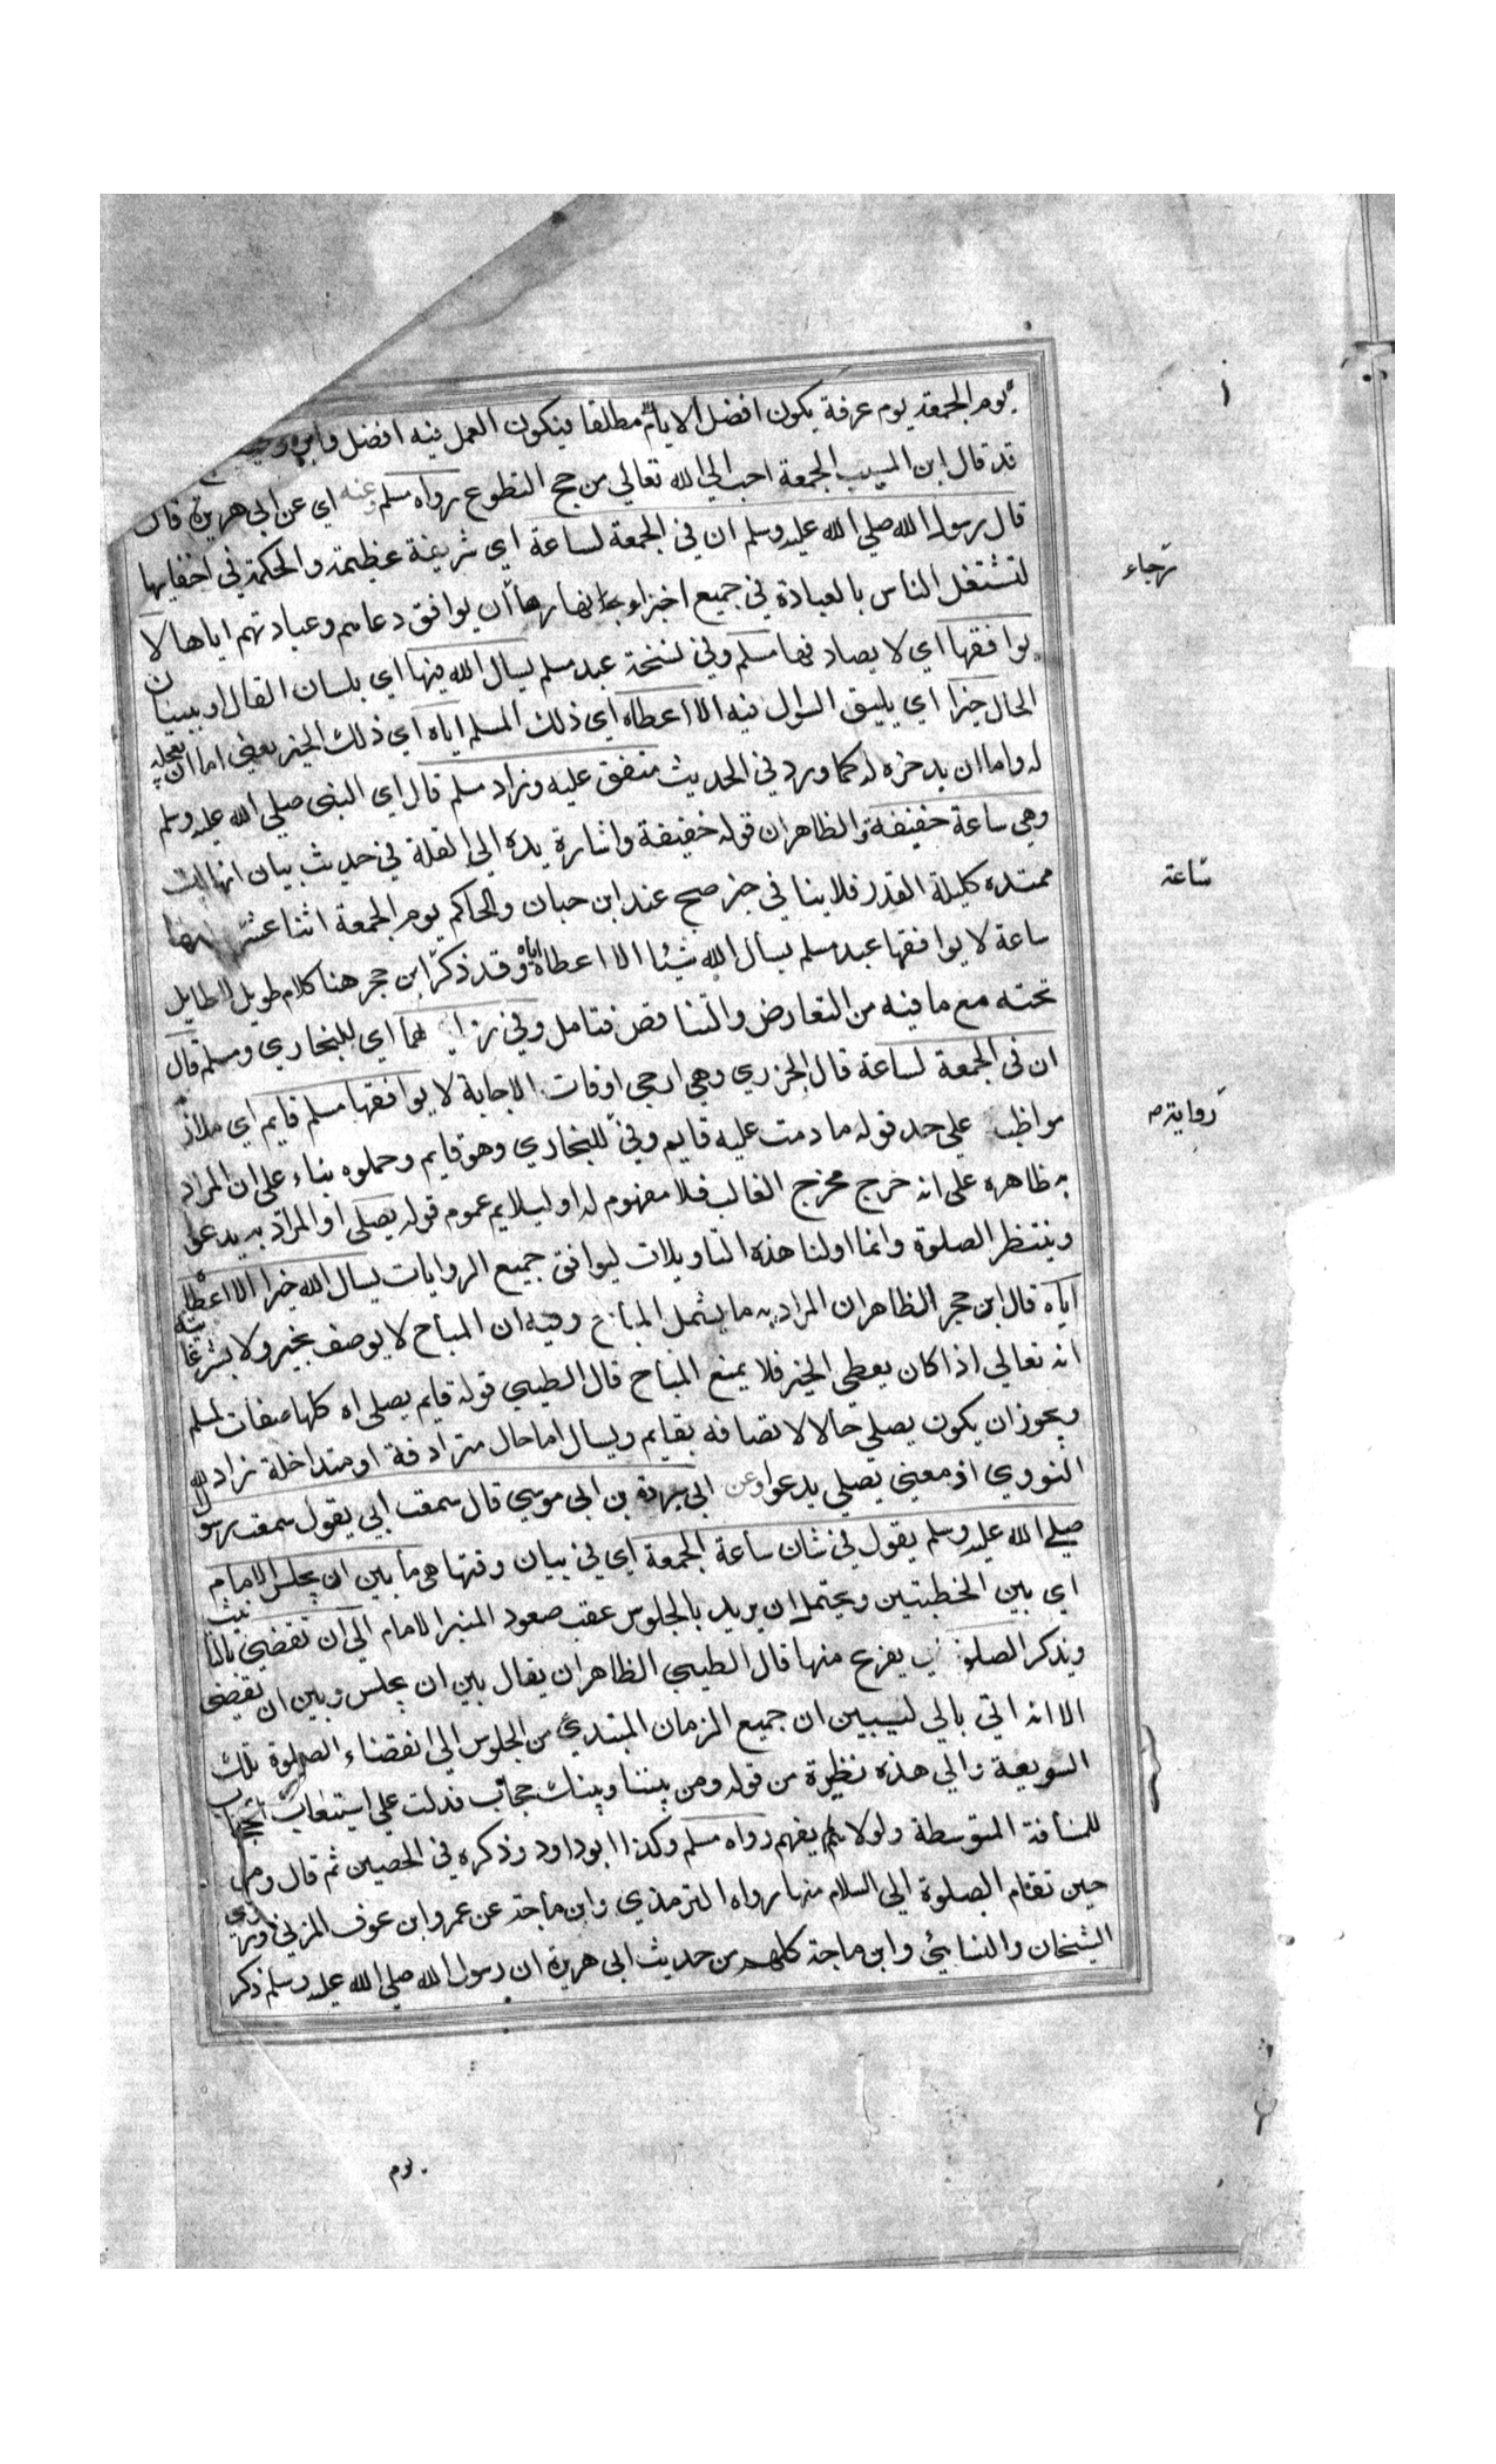 يوم الجمعة يوم عرفة يكون افضل الايام مطلقا فيكون العمل فيه افضل وابر
قد قال ابن المسيب الجمعة احب الي الله تعالي من حج التطوع رواه مسلم وعنه اي عن ابي هريرة قال
قال رسول الله صلي الله عليه وسلم ان في الجمعة لساعة اي شريفة عظيمة والحكمة في اخفايها
لتشتغل الناس بالعبادة في جميع اجزاء نهارها ان يوافق دعاهم وعبادتهم اياها لا
رجاء
يوافقها اي لا يصادفها مسلم وفي نسخة عبد مسلم يسال الله فيها اي بلسان القال او ببيان
الحال خيرا اي يليق السوال فيه الا اعطاه اي ذلك المسلم اياه اي ذلك الخير يعني اما ان يعجله
له واما ان يدخره له كما ورد في الحديث متفق عليه وزاد مسلم قال اي النبي صلي الله عليه وسلم
وهي ساعة خفيفة والظاهر ان قوله خفيفة واشارة يده الي القلة في حديث بيان انها ليت
ممتده كليلة القدر فلا ينا في خبر صحح عند ابن حبان والحاكم يوم الجمعة اثنا عشر
ساعة
ساعة لا يوافقها عبد مسلم يسأل الله شيئا الا اعطاه اياه وقد ذكر ابن حجر هنا كلام طويل لا طايل
تحته مع ما فيه من التعارض والتنا قض فتامل وفي لهما اي للبخاري ومسلم قال
ان في الجمعة لساعة قال الجزري وهي ارجي اوقات الاجابة لا يوافقها مسلم قايم اي ملاز
رواية
مواظب علي حد قوله ما دمت عليه قايم وفي للبخاري وهو قايم وحملوه بناء علي ان المراد
به ظاهره علي انه خرج مخرج الغالب فلا مفهوم له او ليلايم عموم قوله يصلي او المراد به يدعو
وينتظر الصلوة وانما اولنا هذه التاويلات ليوافق جميع الروايات يسال الله خيرا الا اعطا
اياه قال ابن حجر الظاهر ان المراد به ما يشمل المباح وفيه ان المباح لا يوصف بخير ولا بشر غايته
انه تعالي اذا كان يعطي الخير فلا يمنع المباح قال الطيبي قوله قايم يصلي اه كلها صفات لمسلم
ويجوز ان يكون يصلي حالا لاتصافه بقايم ويسال اما حال مترادفة او متداخلة زاد
النووي اذ معني يصلي يدعوا وعن ابي بردة بن ابي موسي قال سمعت ابي يقول سمعت رسول الله
صلي الله عليه وسلم يقول في شان ساعة الجمعة اي في بيان وقتها هي ما بين ان يجلس الامام
اي بين الخطبتين ويحتمل ان يريد بالجلوس عقب صعود المنبر الامام الي ان تقضي بالتانيث
ويذكر الصلوة يفرغ منها قال الطيبي الظاهر ان يقال بين ان يجلس وبين ان يقضي
الا انه اتي بالي ليبين ان جميع الزمان المبتدي من الجلوس الي انقضاء الصلوة تلك
السويعة والي هذه نظيرة من قوله ومن بيننا وبينك حجاب فدلت علي استيعاب الحجاب
للمسافة المتوسطة ولولا لم يفهم رواه مسلم وكذا ابو داود وذكره في الحصين ثم قال ومن
حين تقام الصلوة الي السلام منها رواه الترمذي وابن ماجة عن عمرو ابن عوف المزني وروي
الشيخان والنسائي وابن ماجة كلهم من حديث ابي هريرة ان رسول الله صلي الله عليه وسلم ذكر
يوم